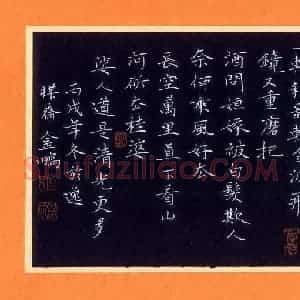 金波飛
鏡又重磨把
酒問姮娥被白髮欺人
奈何乘風好去
長空萬里直下看山
河斫去桂婆
娑人道是清光更多
丙戌年冬
Shufaziliao.com